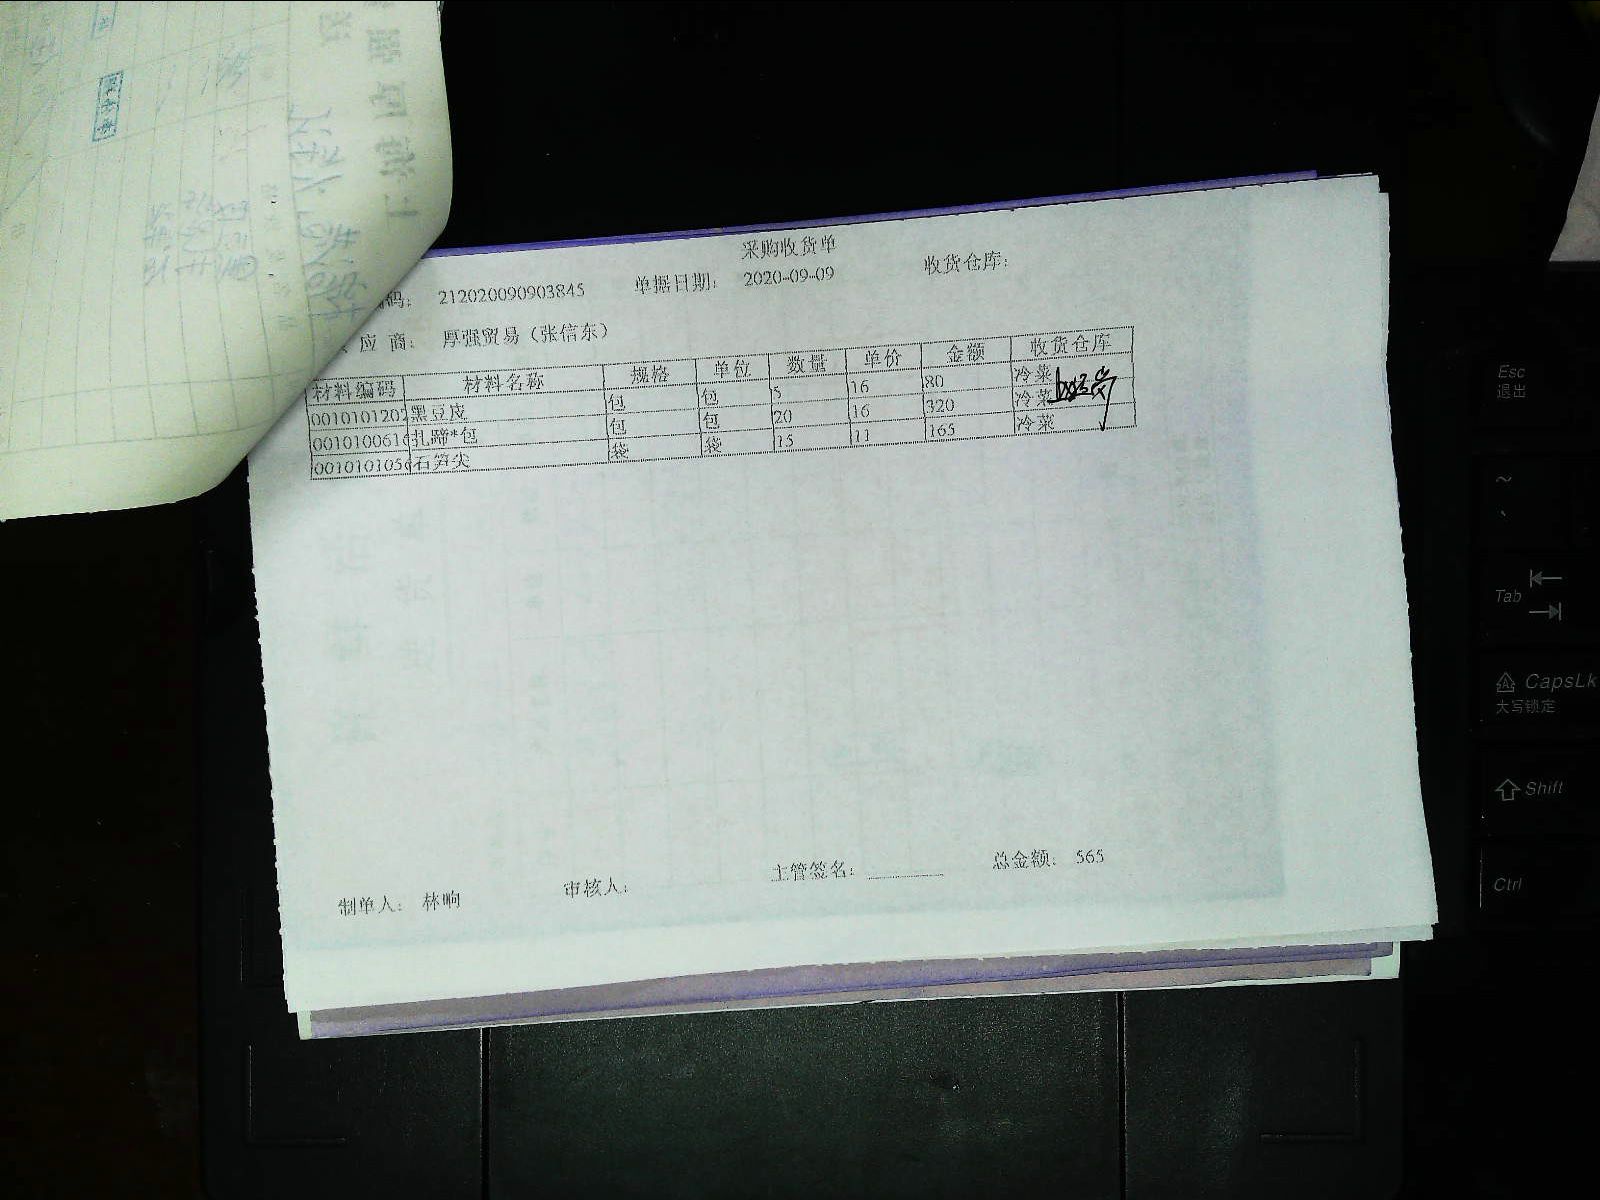 采购收货单
码: 212020090903845 单据日期: 2020-09-09 收货仓库:
应 商: 厚强贸易（张信东）
材料编码 材料名称 规格 单位 数量 单价 金额 收货仓库
0010101202 黑豆皮 包 包 5 16 80 冷菜
001010061 扎蹄*包 包 包 20 16 320 冷菜
001010105 石笋尖 袋 袋 15 11 165 冷菜
制单人: 林响 审核人: 主管签名: 总金额: 565
Esc
退出
~
Tab
CapsLk
大写锁定
Shift
Ctrl